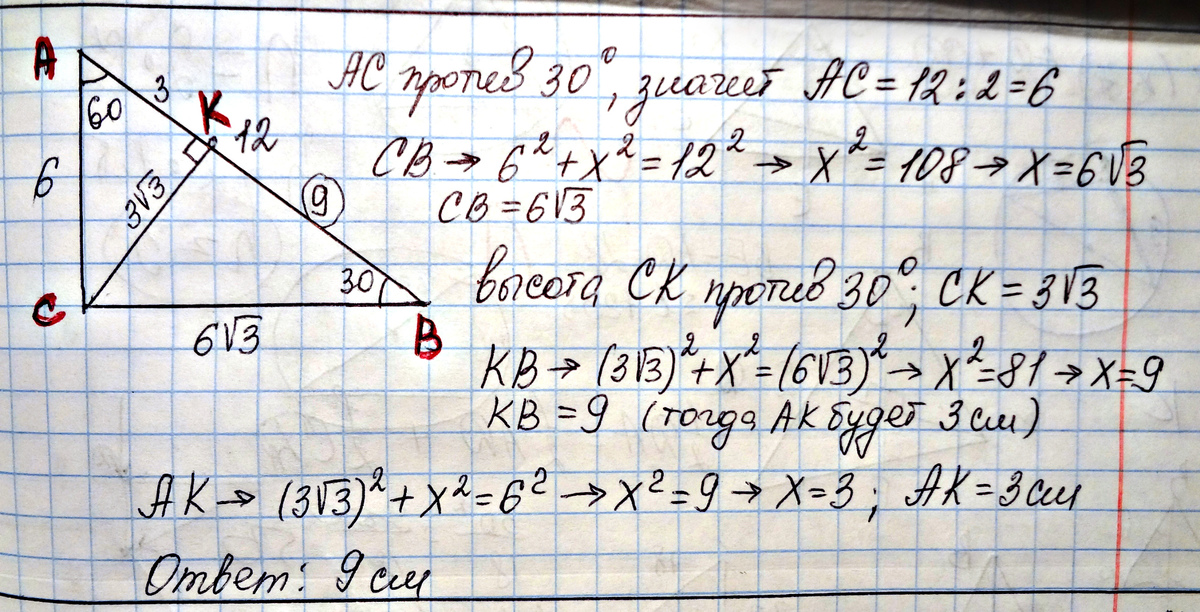 A
3
60
K
12
6
3√3
9
30
C
6√3
B
AC против 30°, значит AC = 12 : 2 = 6
CB → 6² + x² = 12² → x² = 108 → x = 6√3
CB = 6√3
высота CK против 30°; CK = 3√3
KB → (3√3)² + x² = (6√3)² → x² = 81 → x = 9
KB = 9 (тогда AK будет 3 см)
AK → (3√3)² + x² = 6² → x² = 9 → x = 3; AK = 3 см
Ответ: 9 см